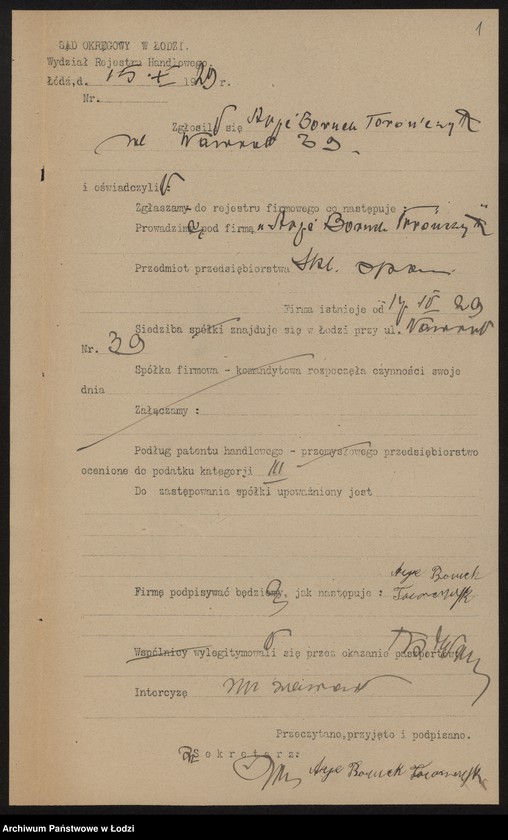 1
SĄD OKRĘGOWY W ŁODZI.
Wydział Rejestru Handlowego.
Łódź, d. 15 X 1929 r.
Nr.
Zgłosił się Arje Boruch Torończyk
ul Nawrot 39
i oświadczył:
Zgłaszam do rejestru firmowego co następuje :
Prowadzę pod firmą "Arje Boruch Torończyk"
Przedmiot przedsiębiorstwa Skl.
Firma istnieje od 29
Siedziba spółki znajduje się w Łodzi przy ul. Nawrot
Nr. 39
Spółka firmowa - komandytowa rozpoczęła czynności swoje
dnia
Załączamy :
Podług patentu handlowego - przemysłowego przedsiębiorstwo
ocenione do podatku kategorji III
Do zastępowania spółki upoważniony jest
Arje Boruch
Firmę podpisywać będzie, jak następuje : Torończyk
Wspólnicy wylegitymowali się przez okazanie paszportów
Intercyzę nie zawarł
Przeczytano, przyjęto i podpisano.
Sekretarz:
Arje Boruch Torończyk
Archiwum Państwowe w Łodzi